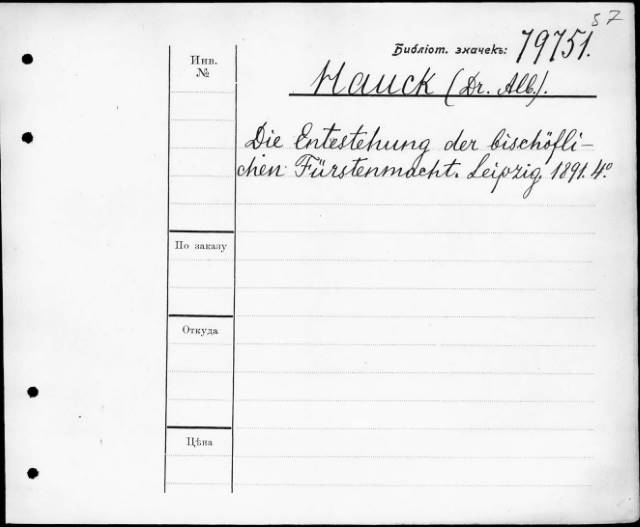 57
Библіот. значекъ: 79751.
Инв.
№
Hauck (Dr. Alb.).
Die Entestehung der bischöfli-
chen Fürstenmacht. Leipzig. 1891. 4°
По заказу
Откуда
Цѣна